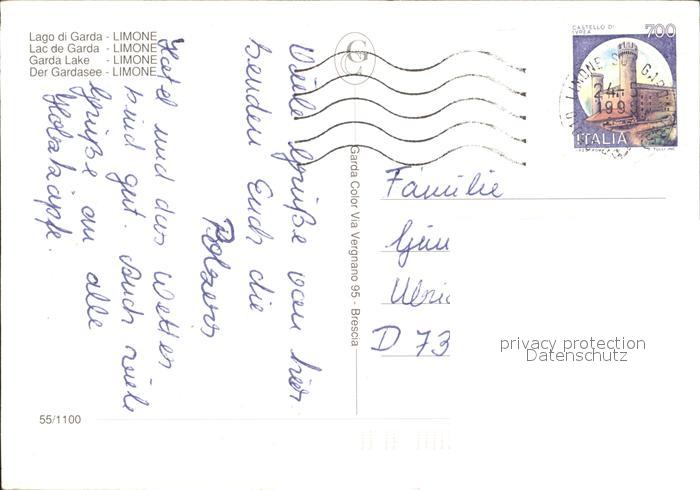 Lago di Garda - LIMONE
Lac de Garda - LIMONE
Garda Lake - LIMONE
Der Gardasee - LIMONE
Viele Grüße von hier
senden Euch die
Hotel und das Wetter
sind gut. Auch viele
Grüße an alle
Garda Color Via Vergnano 95 - Brescia
CASTELLO DI
IVREA
700
ITALIA
LIMONE SUL GARDA
Familie
D 73
privacy protection
Datenschutz
55/1100